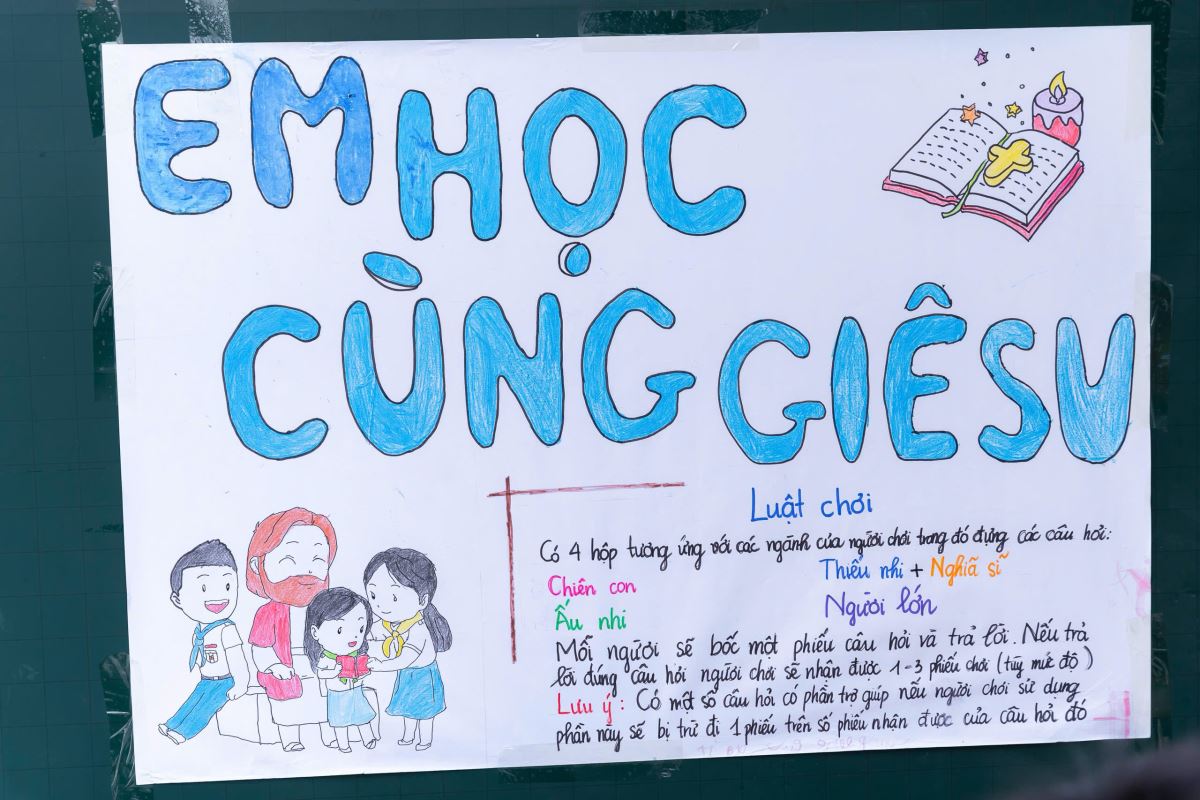 EM HỌC
CÙNG GIÊSU
Luật chơi
Có 4 hộp tương ứng với các ngành của người chơi trong đó đựng các câu hỏi:
Chiên con
Thiếu nhi + Nghĩã sĩ
Ấu nhi
Người lớn
Mỗi người sẽ bốc một phiếu câu hỏi và trả lời. Nếu trả
lời đúng câu hỏi người chơi sẽ nhận được 1-3 phiếu chơi (tùy mức độ)
Lưu ý: Có một số câu hỏi có phần trợ giúp nếu người chơi sử dụng
phần này sẽ bị trừ đi 1 phiếu trên số phiếu nhận được của câu hỏi đó